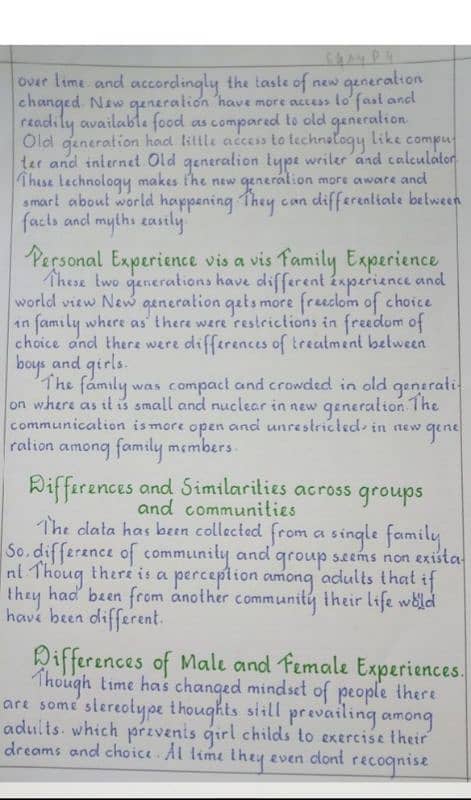 over time. and accordingly the taste of new generation
changed. New generation have more access to fast and
readily available food as compared to old generation.
Old generation had little access to technology like compu-
ter and internet Old generation type writer and calculator.
These technology makes the new generation more aware and
smart about world happening. They can differentiate between
facts and myths easily.
Personal Experience vis a vis Family Experience
These two generations have different experience and
world view New generation gets more freedom of choice
in family where as there were restrictions in freedom of
choice and there were differences of treatment between
boys and girls.
The family was compact and crowded in old generati-
on where as it is small and nuclear in new generation. The
communication is more open and unrestricted in new gene
ration among family members.
Differences and Similarities across groups
and communities
The data has been collected from a single family
So, difference of community and group seems non exista-
nt. Thoug there is a perception among adults that if
they had been from another community their life would
have been different.
Differences of Male and Female Experiences.
Though time has changed mindset of people there
are some stereotype thoughts still prevailing among
adults. which prevents girl childs to exercise their
dreams and choice. At time they even dont recognise